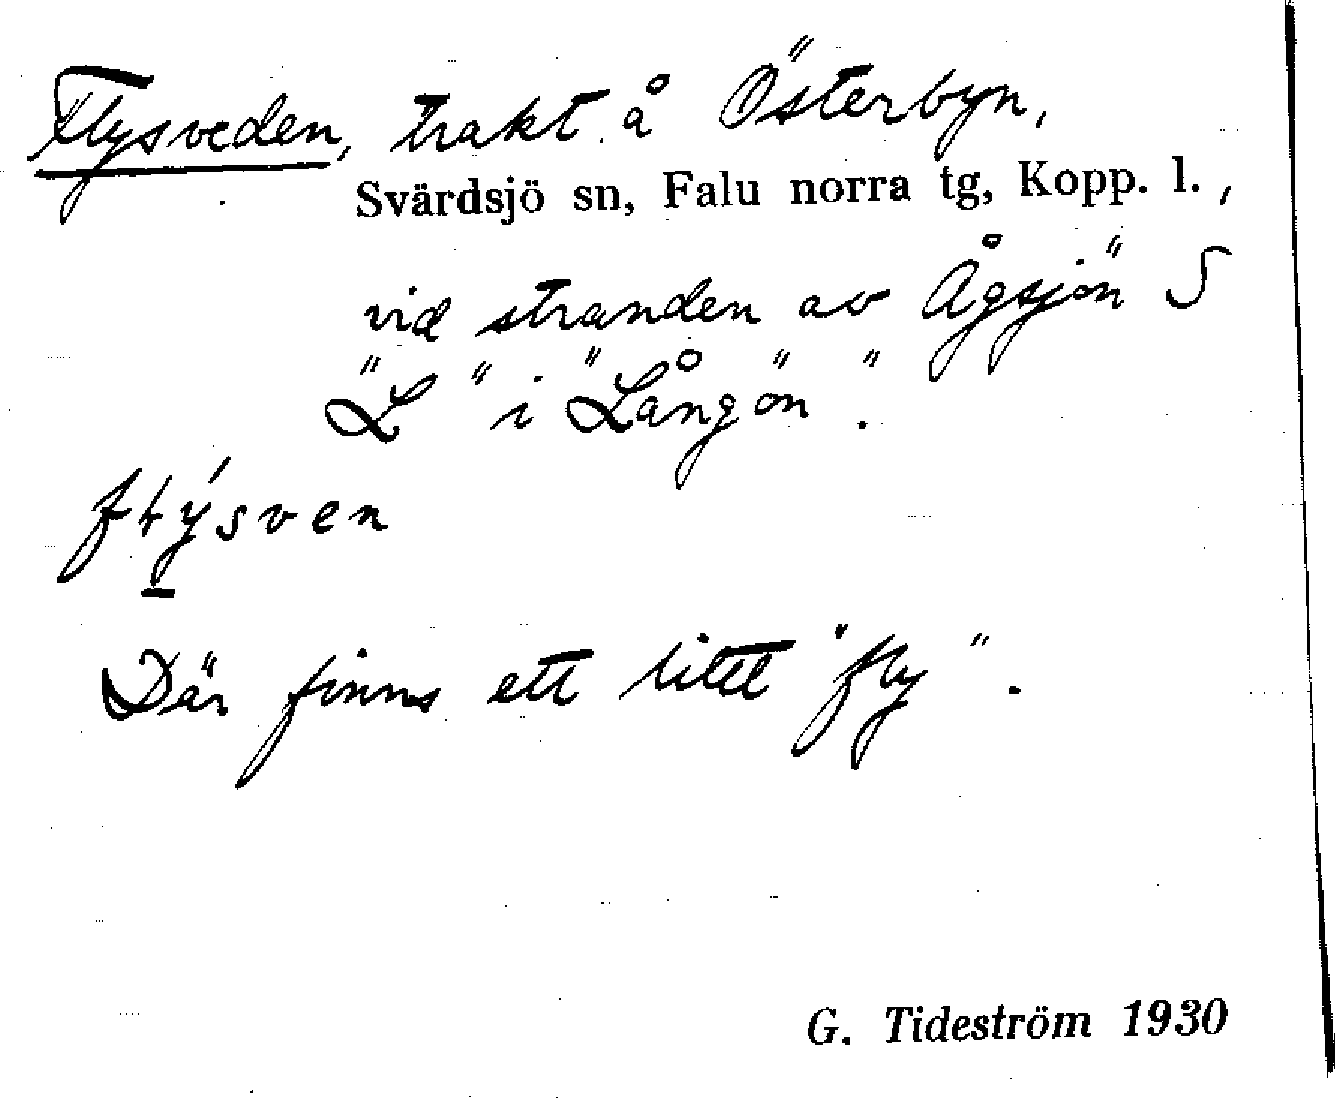 Flysveden, trakt å Österbyn,
Svärdsjö sn, Falu norra tg, Kopp. l.,
vid stranden av Ågsjön S
"L" i "Långön".
flýsven
Där finns ett litet "fly".
G. Tideström 1930